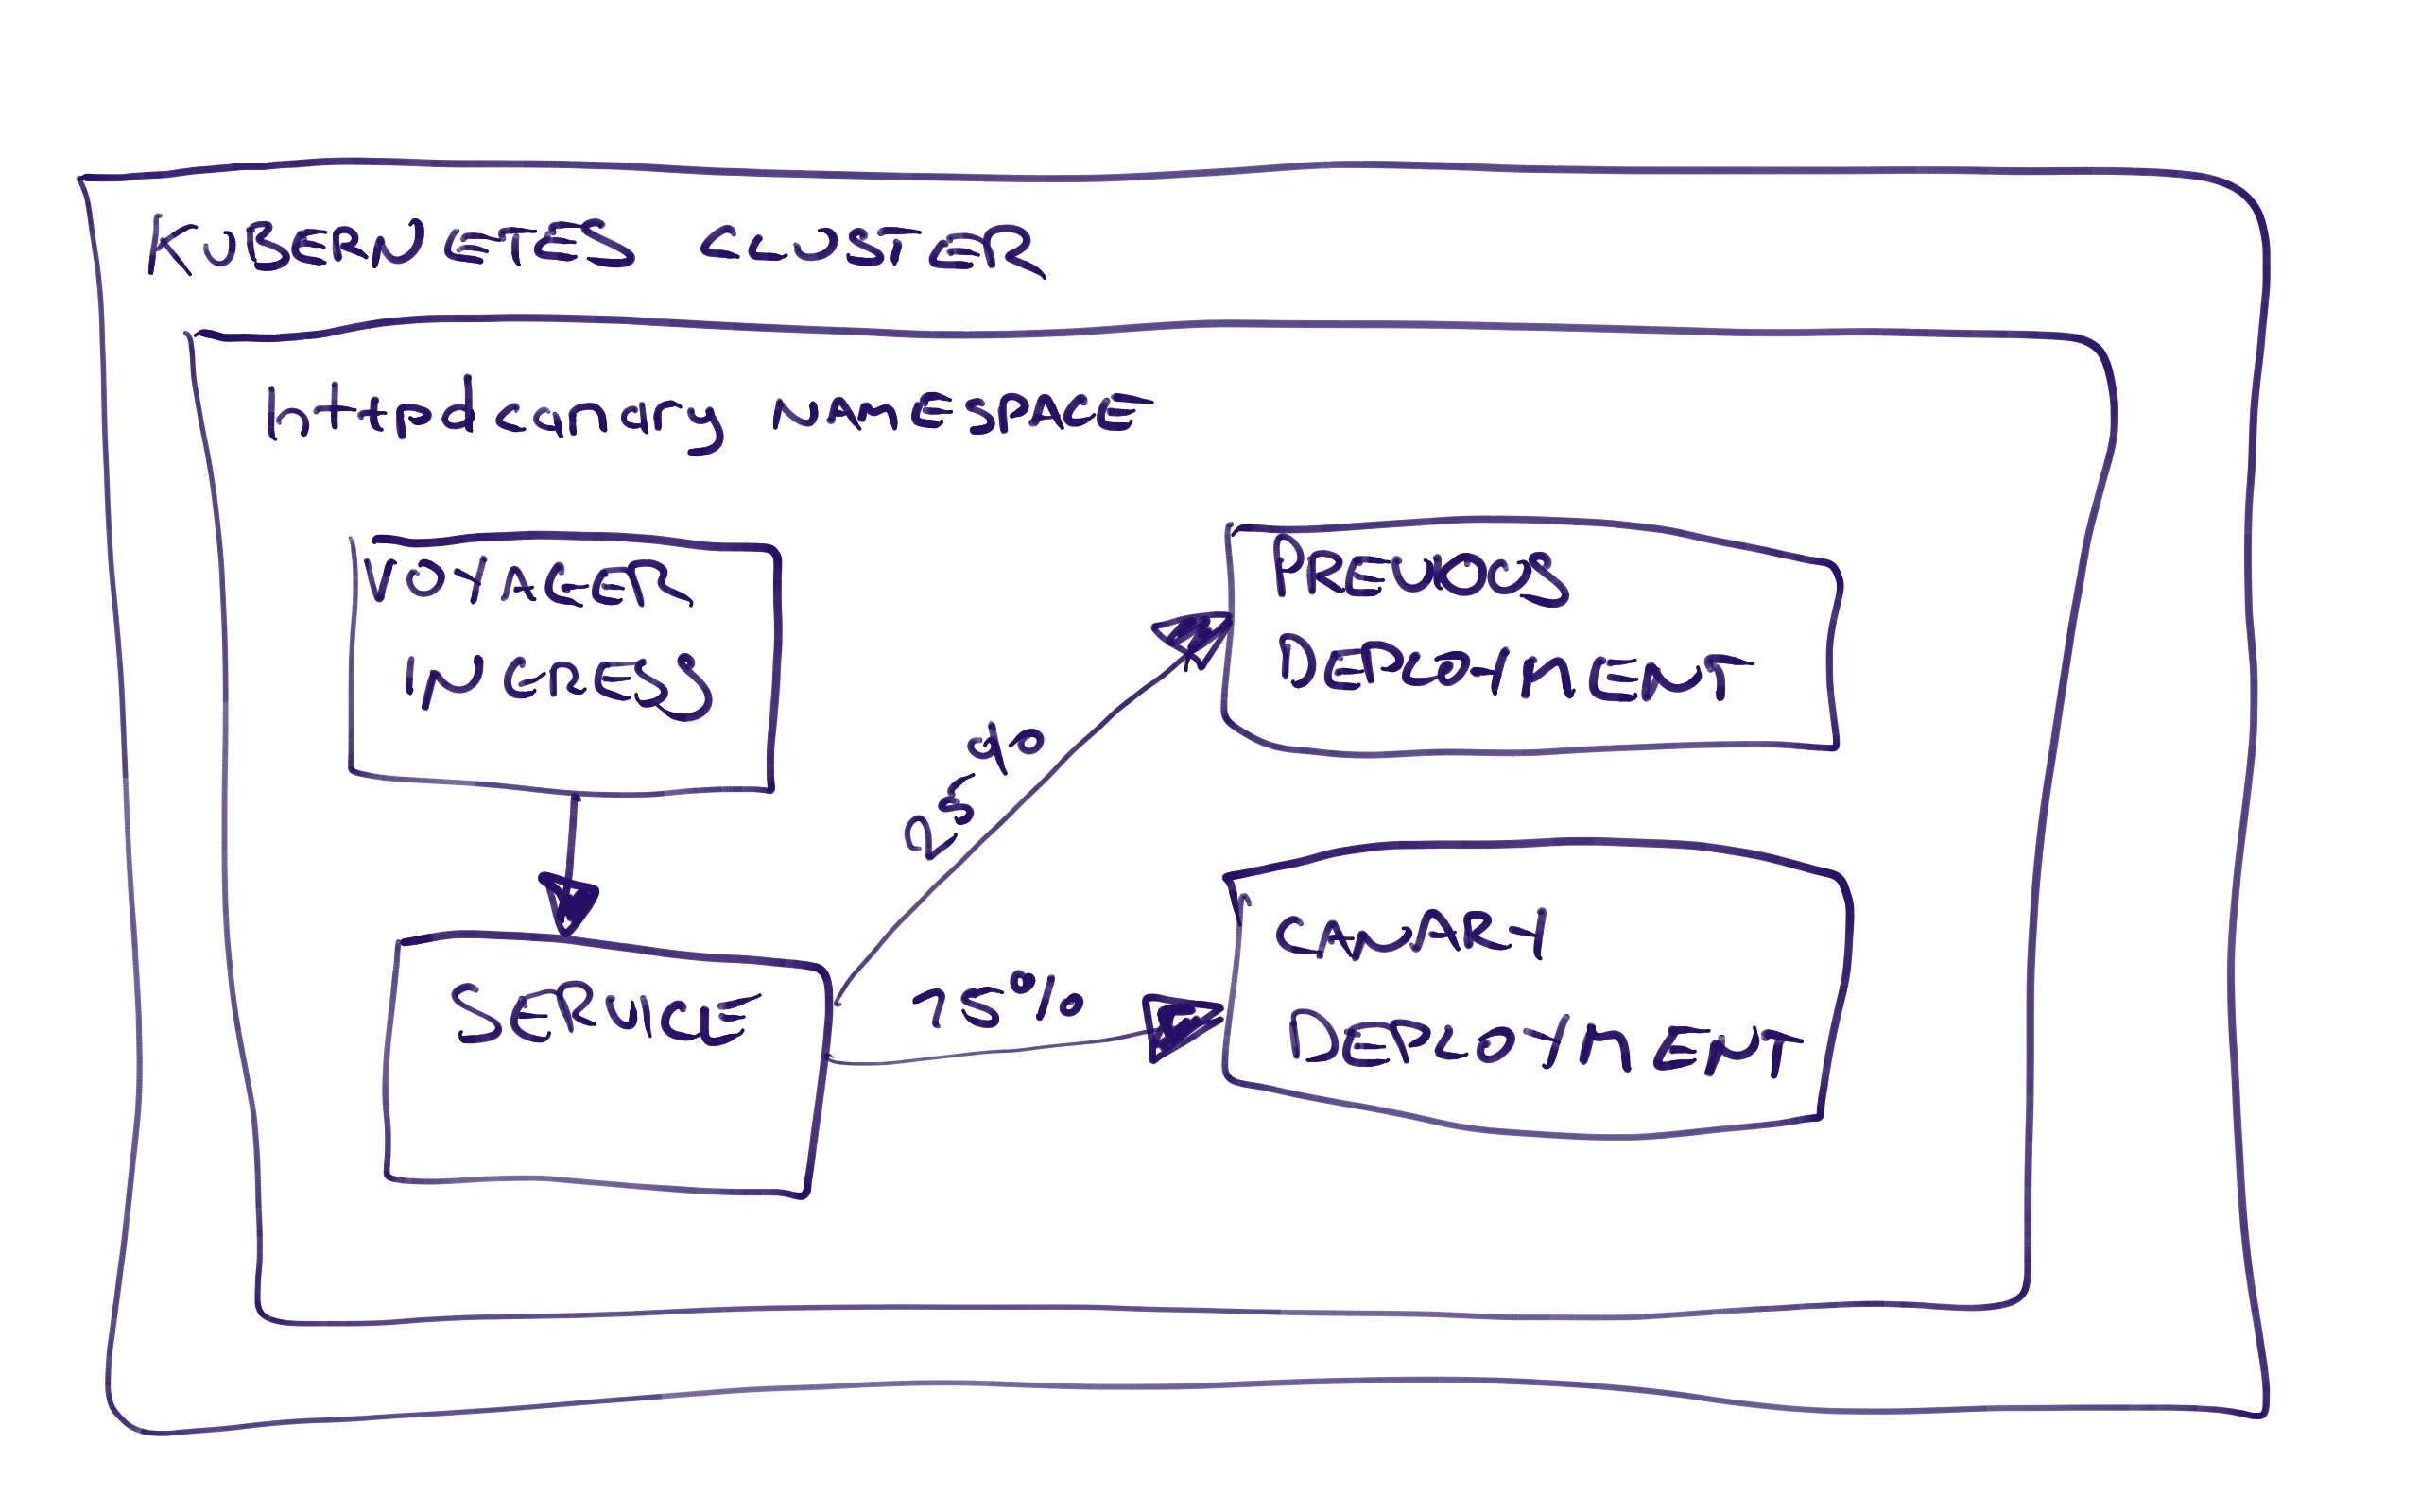 KUBERNETES CLUSTER
httpdcanary NAMESPACE
VOYAGER
INGRESS
PREVIOUS
DEPLOYMENT
25%
CANARY
DEPLOYMENT
75%
SERVICE